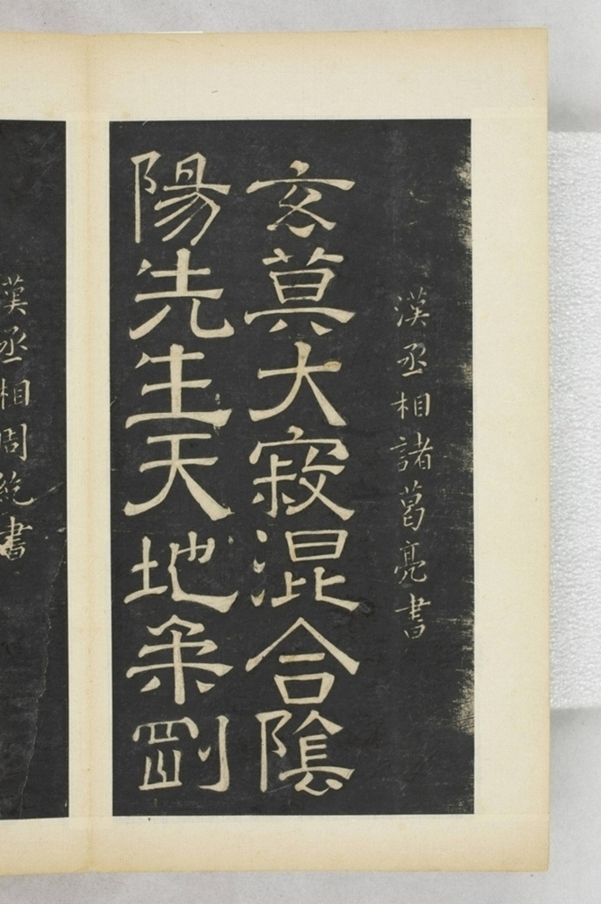 漢丞相諸葛亮書
玄莫大寂混合陰
陽先生天地柔剛
漢丞相周統書